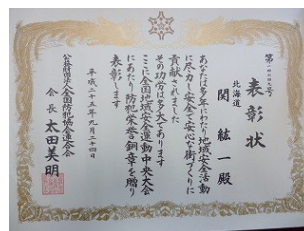 表彰状
北海道
関紘一殿
あなたは多年にわたり地域安全活動
に尽力し安全で安心な街づくりに
貢献されました
その功労は多大であります
ここに全国地域安全運動中央大会
にあたり防犯栄誉銅章を贈り
表彰します
平成二十五年九月二十四日
公益財団法人全国防犯協会連合会
会長 太田美明